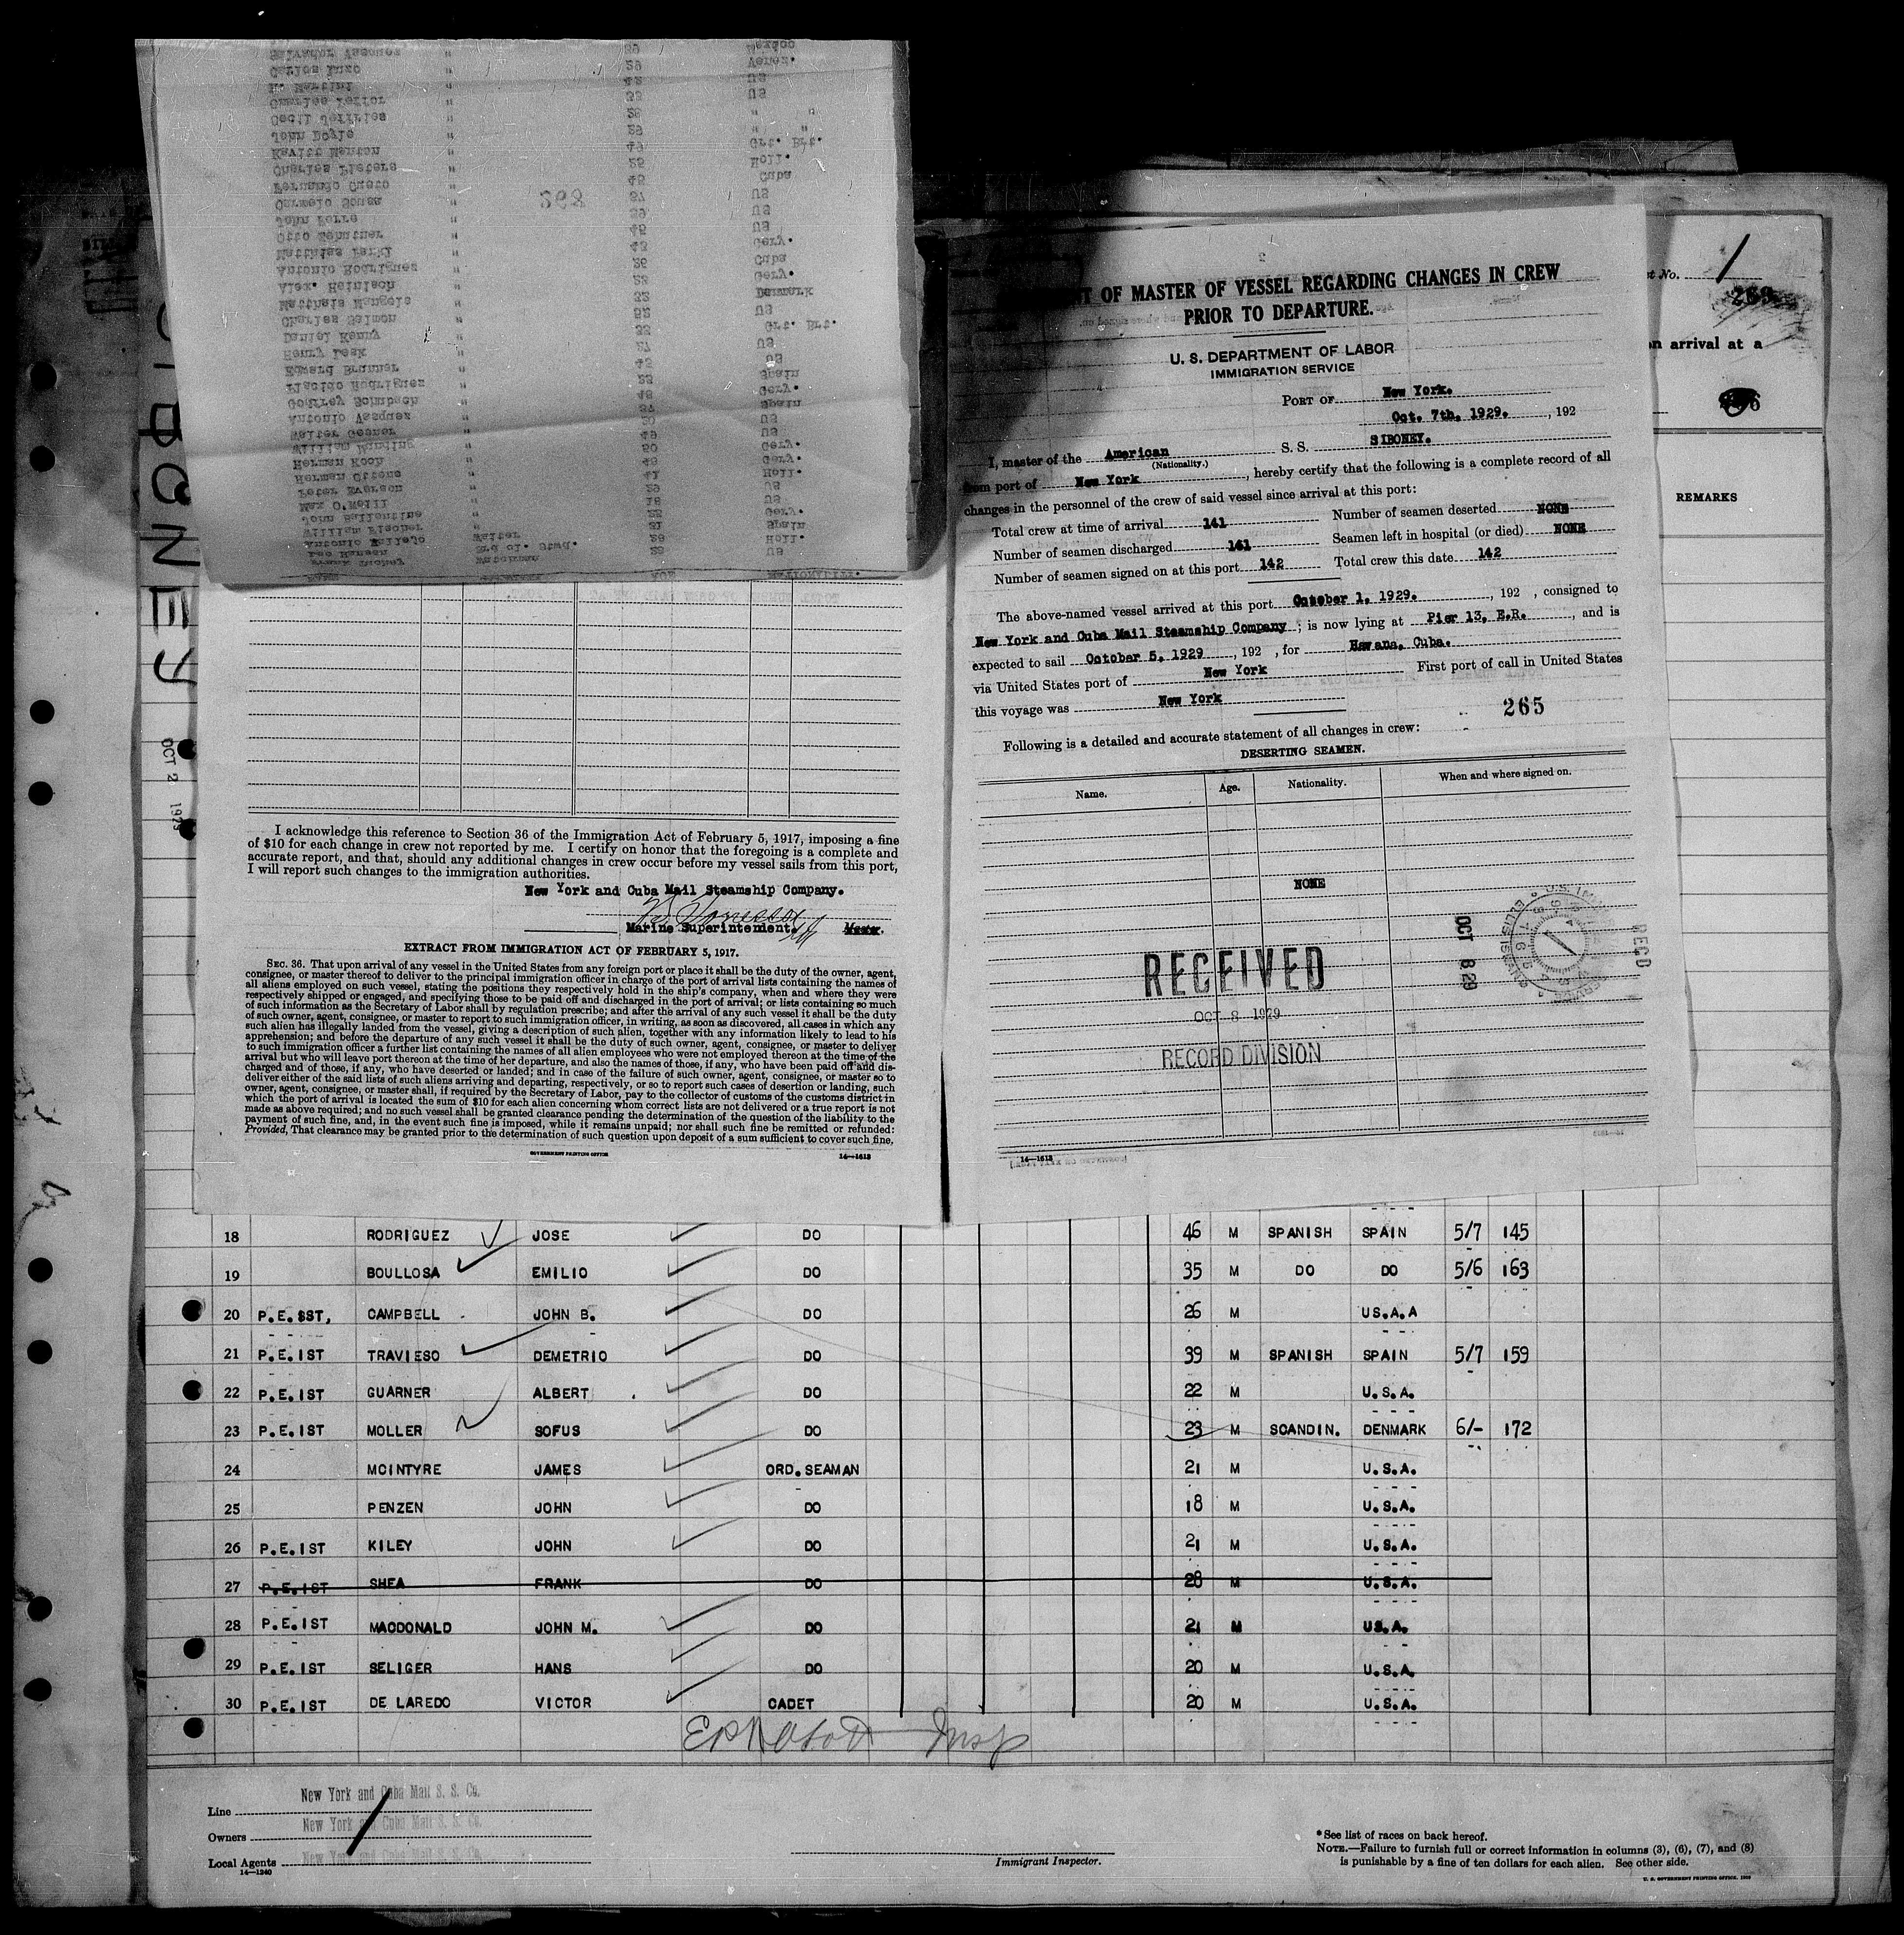 SIBONEY
OCT 2 1929
268
Salvador Vasquez " 29 Mexico
Carlos " 29 Venez.
M. Martini " 42 US
Charles " 33 US
Cecil Jeffries " 26 " "
John Doyle " 29 " "
Kavitt Manton " 49 Grt. Brt.
Charles Pieters " 25 Holl.
Fernando Cueto " 45 Cuba
Carmelo Sousa " 37 US
John Torre " 39 US
Otto " 45 US
Matthias " 43 Gery.
Antonio Rodriguez " 26 Cuba
Alex. Heinisch " 23 Gery.
Matthais Mangels " 32 Denmark
Charles Salmon " 52 US
Daniel Kenny " 33 Grt. Brt.
Henry Leak " 27 US
Edward Brunner " 45 US
Placido Rodriguez " 23 Spain
Godfrey " 48 Gery.
Antonio Vasquez " 37 Spain
Walter Gesner " 20 US
William " 49 US
Herman Koch " 50 Gery.
Herman Ottens " 43 Gery.
Peter Everson " 41 Holl.
Max O.Neill " 29 US
John Ballentine " 18 US
William Fischer " 23 Gery.
Antonio Vallejo Waiter 31 Spain
Leo Hansen 3rd cl. Stwd. 29 Holl.
Frank Watchman 23 US
I acknowledge this reference to Section 36 of the Immigration Act of February 5, 1917, imposing a fine
of $10 for each change in crew not reported by me. I certify on honor that the foregoing is a complete and
accurate report, and that, should any additional changes in crew occur before my vessel sails from this port,
I will report such changes to the immigration authorities.
New York and Cuba Mail Steamship Company.
Marine Superintendent.
EXTRACT FROM IMMIGRATION ACT OF FEBRUARY 5, 1917.
SEC. 36. That upon arrival of any vessel in the United States from any foreign port or place it shall be the duty of the owner, agent,
consignee, or master thereof to deliver to the principal immigration officer in charge of the port of arrival lists containing the names of
all aliens employed on such vessel, stating the positions they respectively hold in the ship's company, when and where they were
respectively shipped or engaged, and specifying those to be paid off and discharged in the port of arrival; or lists containing so much
of such information as the Secretary of Labor shall by regulation prescribe; and after the arrival of any such vessel it shall be the duty
of such owner, agent, consignee, or master to report to such immigration officer, in writing, as soon as discovered, all cases in which any
such alien has illegally landed from the vessel, giving a description of such alien, together with any information likely to lead to his
apprehension; and before the departure of any such vessel it shall be the duty of such owner, agent, consignee, or master to deliver
to such immigration officer a further list containing the names of all alien employees who were not employed thereon at the time of the
arrival but who will leave port thereon at the time of her departure, and also the names of those, if any, who have been paid off and dis-
charged and of those, if any, who have deserted or landed; and in case of the failure of such owner, agent, consignee, or master so to
deliver either of the said lists of such aliens arriving and departing, respectively, or so to report such cases of desertion or landing, such
owner, agent, consignee, or master shall, if required by the Secretary of Labor, pay to the collector of customs of the customs district in
which the port of arrival is located the sum of $10 for each alien concerning whom correct lists are not delivered or a true report is not
made as above required; and no such vessel shall be granted clearance pending the determination of the question of the liability to the
payment of such fine, and, in the event such fine is imposed, while it remains unpaid; nor shall such fine be remitted or refunded:
Provided, That clearance may be granted prior to the determination of such question upon deposit of a sum sufficient to cover such fine.
GOVERNMENT PRINTING OFFICE 14—1613
OF MASTER OF VESSEL REGARDING CHANGES IN CREW
PRIOR TO DEPARTURE.
U. S. DEPARTMENT OF LABOR
IMMIGRATION SERVICE
PORT OF New York.
Oct. 7th, 1929. , 192
I, master of the American S. S. SIBONEY.
(Nationality.)
from port of New York , hereby certify that the following is a complete record of all
changes in the personnel of the crew of said vessel since arrival at this port:
Total crew at time of arrival 141 Number of seamen deserted NONE
Number of seamen discharged 141 Seamen left in hospital (or died) NONE
Number of seamen signed on at this port 142 Total crew this date 142
The above-named vessel arrived at this port October 1, 1929. , 192 , consigned to
New York and Cuba Mail Steamship Company ; is now lying at Pier 13, E.R. , and is
expected to sail October 5, 1929 , 192 , for Havana, Cuba.
via United States port of New York First port of call in United States
this voyage was New York
265
Following is a detailed and accurate statement of all changes in crew:
DESERTING SEAMEN.
Name. Age. Nationality. When and where signed on.
NONE
RECEIVED
OCT 8 1929
RECORD DIVISION
OCT 8 29
RECD
14—1613
t No. 1
269
n arrival at a
REMARKS
18 RODRIGUEZ JOSE DO 46 M SPANISH SPAIN 5/7 145
19 BOULLOSA EMILIO DO 35 M DO DO 5/6 163
20 P.E.SST, CAMPBELL JOHN B. DO 26 M US.A.A
21 P.E.IST TRAVIESO DEMETRIO DO 39 M SPANISH SPAIN 5/7 159
22 P.E.IST GUARNER ALBERT . DO 22 M U.S.A.
23 P.E.IST MOLLER SOFUS DO 23 M SCANDIN. DENMARK 6/- 172
24 MCINTYRE JAMES ORD.SEAMAN 21 M U.S.A.
25 PENZEN JOHN DO 18 M U.S.A.
26 P.E.IST KILEY JOHN DO 21 M U.S.A.
27 P.E.IST SHEA FRANK DO 28 M U.S.A.
28 P.E.IST MACDONALD JOHN M. DO 21 M US.A.
29 P.E.IST SELIGER HANS DO 20 M U.S.A.
30 P.E.IST DE LAREDO VICTOR CADET 20 M U.S.A.
Insp
Line New York and Cuba Mail S. S. Co.
Owners New York and Cuba Mail S. S. Co.
Local Agents New York and Cuba Mail S. S. Co.
14—1240
Immigrant Inspector.
*See list of races on back hereof.
NOTE.—Failure to furnish full or correct information in columns (3), (6), (7), and (8)
is punishable by a fine of ten dollars for each alien. See other side.
U. S. GOVERNMENT PRINTING OFFICE. 1929